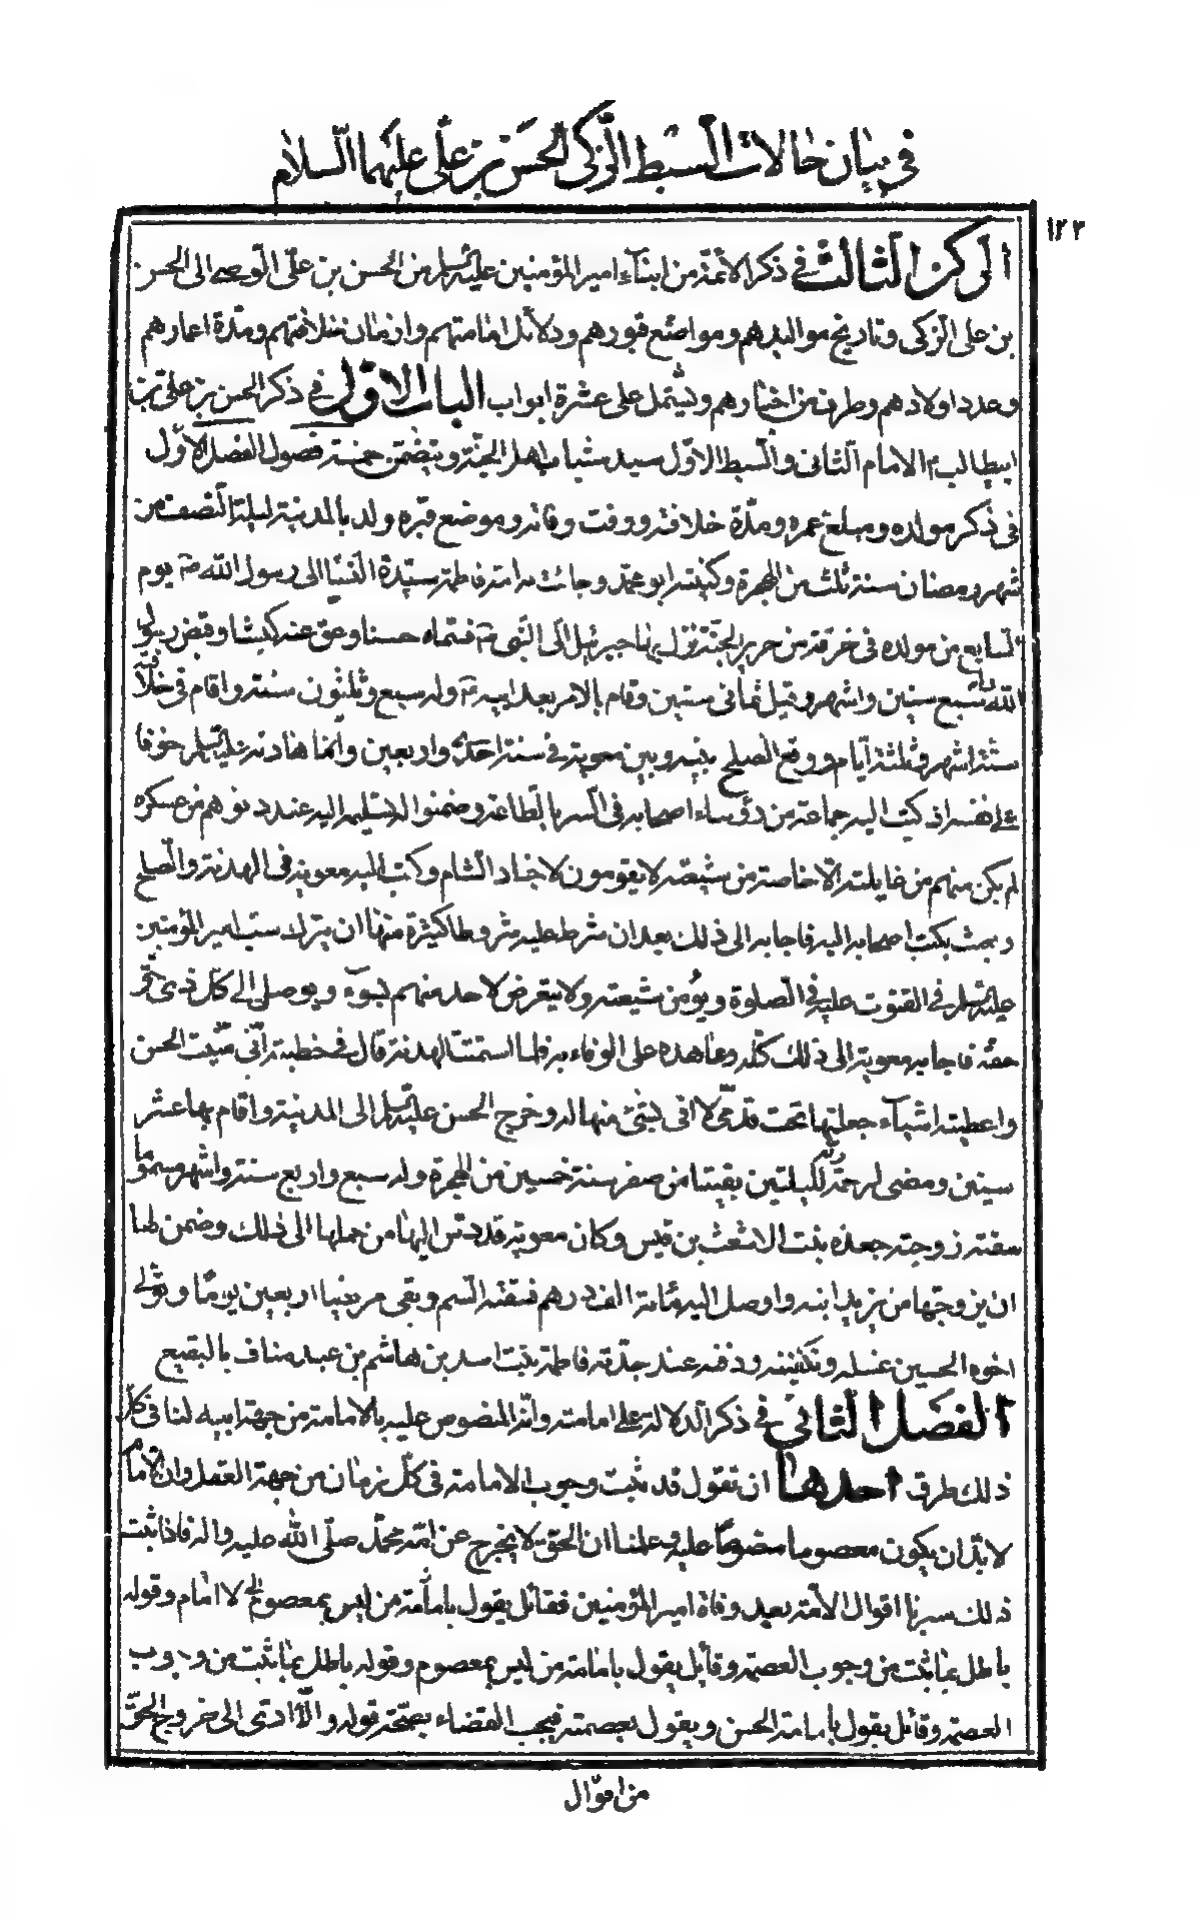 في بيان حالات السبط الزكى الحسن بن على عليهما السلام
١٢٣
الركن الثالث في ذكر الائمة من ابناء امير المؤمنين عليه السلم من الحسن بن على الوصى الى الحسن
بن على الزكى وتاريخ مواليدهم ومواضع قبورهم ودلائل امامتهم وازمان خلافتهم ومدة اعمارهم
وعدد اولادهم وطرف من اخبارهم ويشتمل على عشرة ابواب الباب الاول في ذكر الحسن بن على بن
ابيطالب ع الامام الثانى والسبط الاول سيد شباب اهل الجنة ويتضمن خمسة فصول الفصل الاول
فى ذكر مولده ومبلغ عمره ومدة خلافته ووقت وفاته وموضع قبره ولد بالمدينة ليلة النصف من
شهر رمضان سنة ثلث من الهجرة وكنيته ابو محمد وجائت به امه فاطمة سيدة النساء الى رسول الله ص يوم
السابع من مولده فى خرقة من حرير الجنة نزل بها جبرئيل الى النبى ص فسماه حسنا وعق عنه كبشا وقبض رسول
الله وله سبع سنين واشهر وقيل ثمانى سنين وقام بالامر بعد ابيه ع وله سبع وثلثون سنة واقام فى خلافته
ستة اشهر وثلثة ايام ووقع الصلح بينه وبين معوية فى سنة احدى واربعين وانما هادنه عليه السلم خوفا
على نفسه اذ كتب اليه جماعة من رؤساء اصحابه فى السر بالطاعة وضمنوا له تسليمه اليه عند دنوهم من عسكره
لم يكن منهم من غايلته الا خاصة من شيعته لا يقومون لاجناد الشام وكتب اليه معوية فى الهدنة والصلح
وبعث بكتب اصحابه اليه فاجابه الى ذلك بعد ان شرط عليه شروطا كثيرة منها ان يترك سب امير المؤمنين
عليه السلم فى القنوت عليه فى الصلوة ويؤمن شيعته ولا يتعرض لاحد منهم بسوء ويوصل الى كل ذى حق
حقه فاجابه معوية الى ذلك كله وعاهده على الوفاء به فلما استتمت الهدنة قال فى خطبته انى منيت الحسن
واعطيته اشياء جعلتها تحت قدمى لا افى بشئ منها له وخرج الحسن عليه السلم الى المدينة واقام بها عشر
سنين ومضى الى رحمة ربه لليلتين بقيتا من صفر سنة خمسين من الهجرة وله سبع واربع سنة واشهر مسموما
سقته زوجته جعده بنت الاشعث بن قيس وكان معوية قد دس اليها من حملها الى ذلك وضمن لها
ان يزوجها من يزيد ابنه واوصل اليه مائة الف درهم فسقته السم وبقى مريضا اربعين يوما وتولى
اخوه الحسين غسله وتكفينه ودفنه عند جدته فاطمة بنت اسد بن هاشم بن عبد مناف بالبقيع
الفصل الثانى في ذكر الدلالة على امامته وانه المنصوص عليه بالامامة من جهة ابيه لنا فى كل
ذلك طرق احدها ان تقول قد ثبت وجوب الامامة فى كل زمان من جهة العقل وان الامام
لابد ان يكون معصوما منصوصا عليه وعلمنا ان الحق لا يخرج عن امة محمد صلى الله عليه واله فاذا ثبت
ذلك سبرنا اقوال الامة بعد وفاة امير المؤمنين فقائل يقول بامامة من ليس بمعصوم لا امام وقوله
باطل بما ثبت من وجوب العصمة وقايل يقول بامامة من ليس بمعصوم وقوله باطل بما ثبت من وجوب
العصمة وقائل يقول بامامة الحسن ويقول بعصمته فيجب القضاء بصحة قوله والا ادى الى خروج الحق
من اقوال